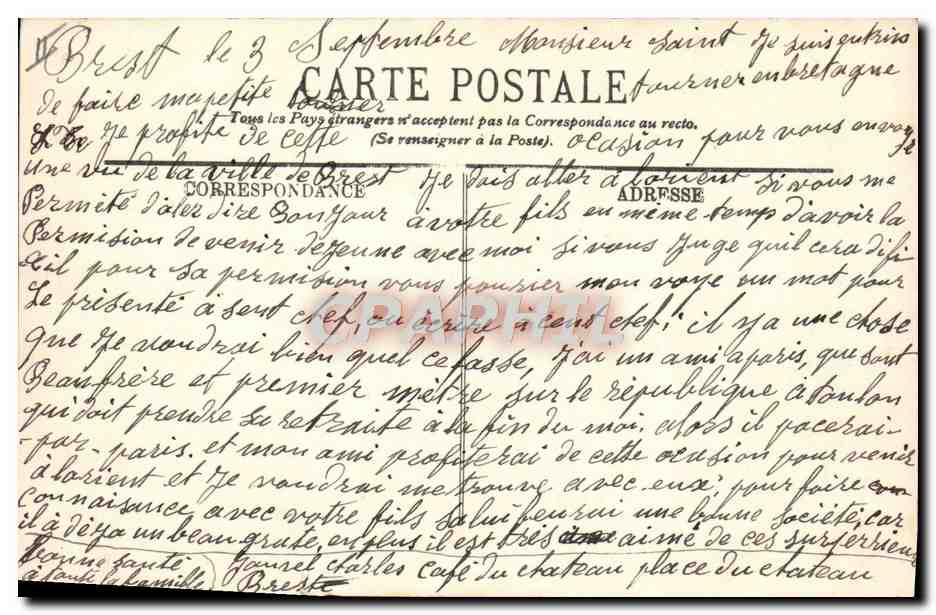 Brest le 3 Septembre Monsieur Saint Je suis en train
CARTE POSTALE
de faire ma petite tourner tourner en bretagne
Tous les Pays étrangers n'acceptent pas la Correspondance au recto.
Je profite de cette ocasion pour vous envoye
(Se renseigner à la Poste).
une vu de la ville de Brest Je dois aller à lorient si vous me
CORRESPONDANCE
ADRESSE
Permeté d'aler dire Bonjour a votre fils en même temp d'avoir la
Permision de venir dejeune avec moi si vous Juge quil cera difi
-cil pour sa permision vous pourier mon voye un mot pour
Le présenté à sont chef, ou ècrire à cent chef; il ya une chose
que Je voudrai bien quel ce fasse, J'ai un ami a paris, que sont
Beau frère et premier mètre sur le république a toulon
qui doit prendre sa retraite à la fin du moi. alors il pacerai-
-par- paris. et mon ami profiterai de cette ocasion pour venir
à lorient et Je voudrai me trouve avec eux, pour faire
connaisance avec votre fils sa lui feurai une bonne société, car
il à deja un beau grate, en plus il est très aimé de ces surjerrieur
bonne santé Jaurel Charles Café du chateau place du chateau
à toute la famille Brest
CPAPHIL